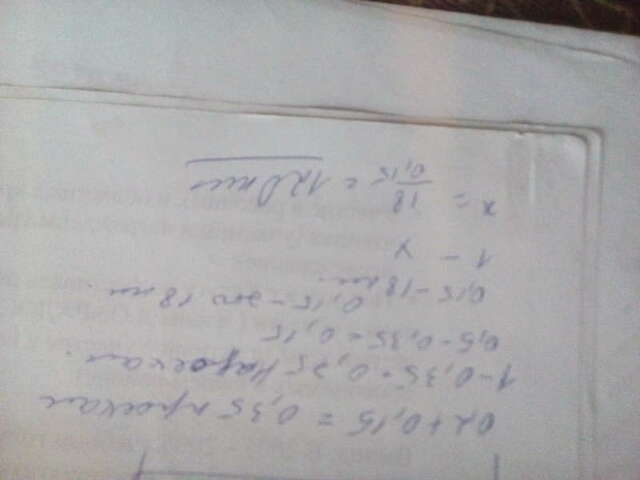 0,2+0,15 = 0,35 проехал
1-0,35 = 0,75
0,5-0,35 = 0,15
0,15 - это 18 км.
0,15 - 18 км.
1 - x
x = 18/0,15 = 120 км